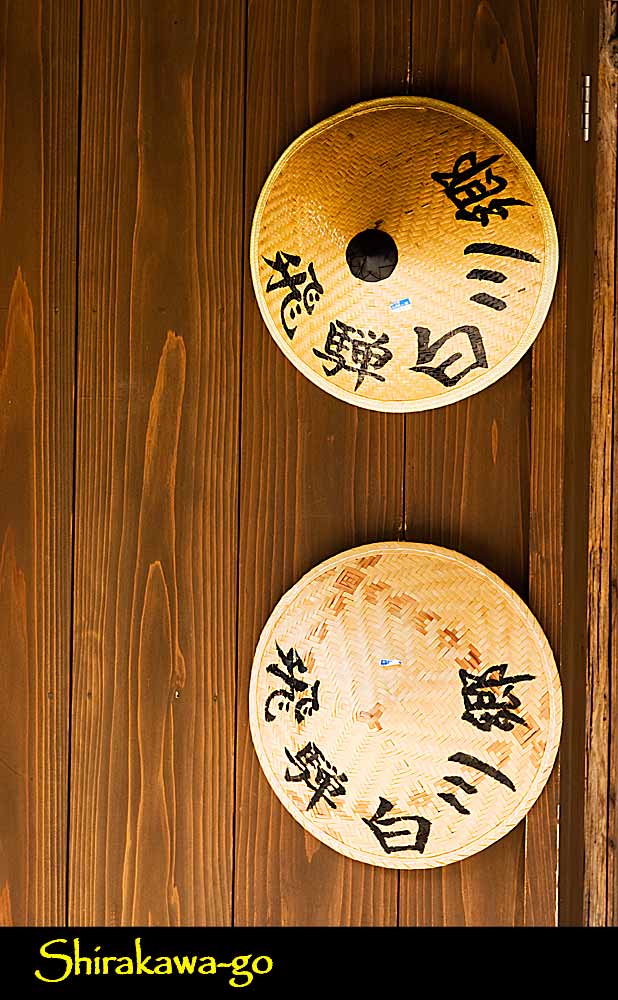 飛騨白川郷
飛騨白川郷
Shirakawa-go